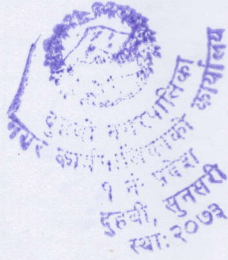 दुहवी नगरपालिका
नगर कार्यपालिकाको कार्यालय
१ नं. प्रदेश
दुहवी, सुनसरी
स्था: २०७३